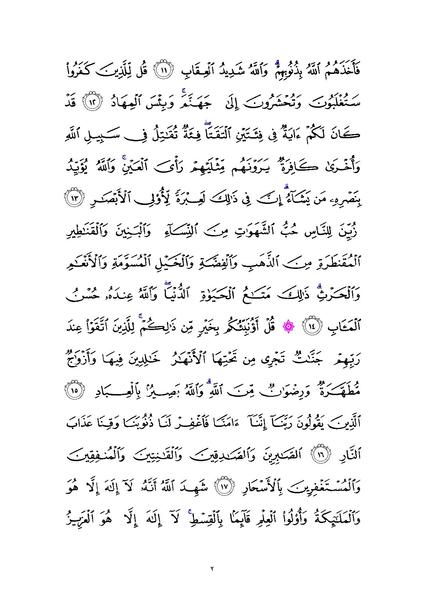 فَأَخَذَهُمُ اللَّهُ بِذُنُوبِهِمْ ۗ وَاللَّهُ شَدِيدُ الْعِقَابِ ﴿١١﴾ قُل لِّلَّذِينَ كَفَرُوا
سَتُغْلَبُونَ وَتُحْشَرُونَ إِلَىٰ جَهَنَّمَ ۚ وَبِئْسَ الْمِهَادُ ﴿١٢﴾ قَدْ
كَانَ لَكُمْ ءَايَةٌ فِى فِئَتَيْنِ الْتَقَتَا ۖ فِئَةٌ تُقَاتِلُ فِى سَبِيلِ اللَّهِ
وَأُخْرَىٰ كَافِرَةٌ يَرَوْنَهُم مِّثْلَيْهِمْ رَأْىَ الْعَيْنِ ۚ وَاللَّهُ يُؤَيِّدُ
بِنَصْرِهِ مَن يَشَآءُ ۗ إِنَّ فِى ذَٰلِكَ لَعِبْرَةً لِّأُوْلِى الْأَبْصَارِ ﴿١٣﴾
زُيِّنَ لِلنَّاسِ حُبُّ الشَّهَوَاتِ مِنَ النِّسَآءِ وَالْبَنِينَ وَالْقَنَاطِيرِ
الْمُقَنطَرَةِ مِنَ الذَّهَبِ وَالْفِضَّةِ وَالْخَيْلِ الْمُسَوَّمَةِ وَالْأَنْعَٰمِ
وَالْحَرْثِ ۗ ذَٰلِكَ مَتَاعُ الْحَيَوٰةِ الدُّنْيَا ۖ وَاللَّهُ عِندَهُ حُسْنُ
الْمَـَٔابِ ﴿١٤﴾ ۞ قُلْ أَؤُنَبِّئُكُم بِخَيْرٍ مِّن ذَٰلِكُمْ ۚ لِلَّذِينَ اتَّقَوْا عِندَ
رَبِّهِمْ جَنَّاتٌ تَجْرِى مِن تَحْتِهَا الْأَنْهَارُ خَالِدِينَ فِيهَا وَأَزْوَاجٌ
مُّطَهَّرَةٌ وَرِضْوَانٌ مِّنَ اللَّهِ ۗ وَاللَّهُ بَصِيرٌ بِالْعِبَادِ ﴿١٥﴾
الَّذِينَ يَقُولُونَ رَبَّنَآ إِنَّنَآ ءَامَنَّا فَاغْفِرْ لَنَا ذُنُوبَنَا وَقِنَا عَذَابَ
النَّارِ ﴿١٦﴾ الصَّابِرِينَ وَالصَّادِقِينَ وَالْقَانِتِينَ وَالْمُنفِقِينَ
وَالْمُسْتَغْفِرِينَ بِالْأَسْحَارِ ﴿١٧﴾ شَهِدَ اللَّهُ أَنَّهُ لَآ إِلَٰهَ إِلَّا هُوَ
وَالْمَلَٰٓئِكَةُ وَأُوْلُوا الْعِلْمِ قَآئِمًا بِالْقِسْطِ ۚ لَآ إِلَٰهَ إِلَّا هُوَ الْعَزِيزُ
٢